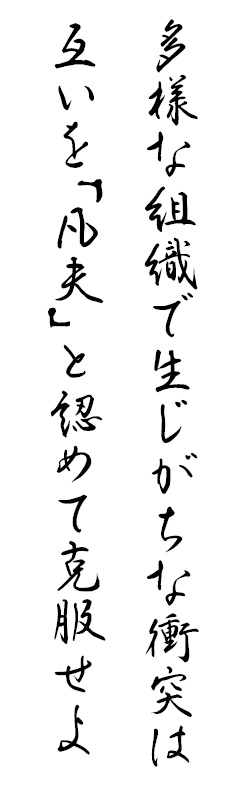 多様な組織で生じがちな衝突は
互いを「凡夫」と認めて克服せよ